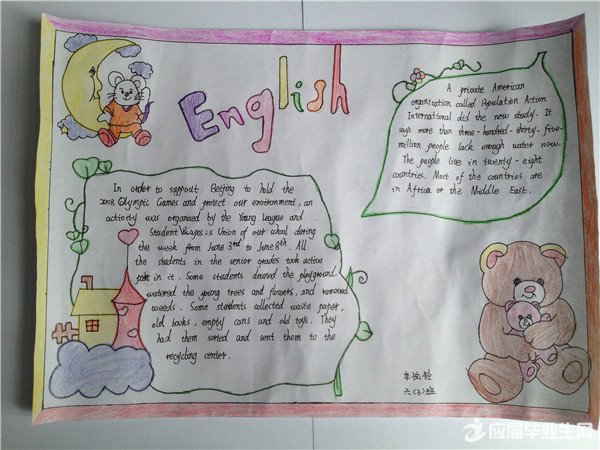 English
A private American
organization called Population Action
International did the new study. It
says more than three-hundred-thirty-five-
million people lack enough water now.
The people live in twenty-eight
countries. Most of the countries are
in Africa or the Middle East.
In order to support Beijing to hold the
2008 Olympic Games and protect our environment, an
activity was organized by the Young League and
Student Union of our school during
the week from June 3rd to June 8th. All
the students in the senior grades took active
part in it. Some students cleaned the playground.
watered the young trees and flowers, and removed
weeds. Some students collected waste paper,
old books, empty cans and old toys. They
had them sorted and sent them to the
recycling center.
李
六(3)班
应届毕业生网